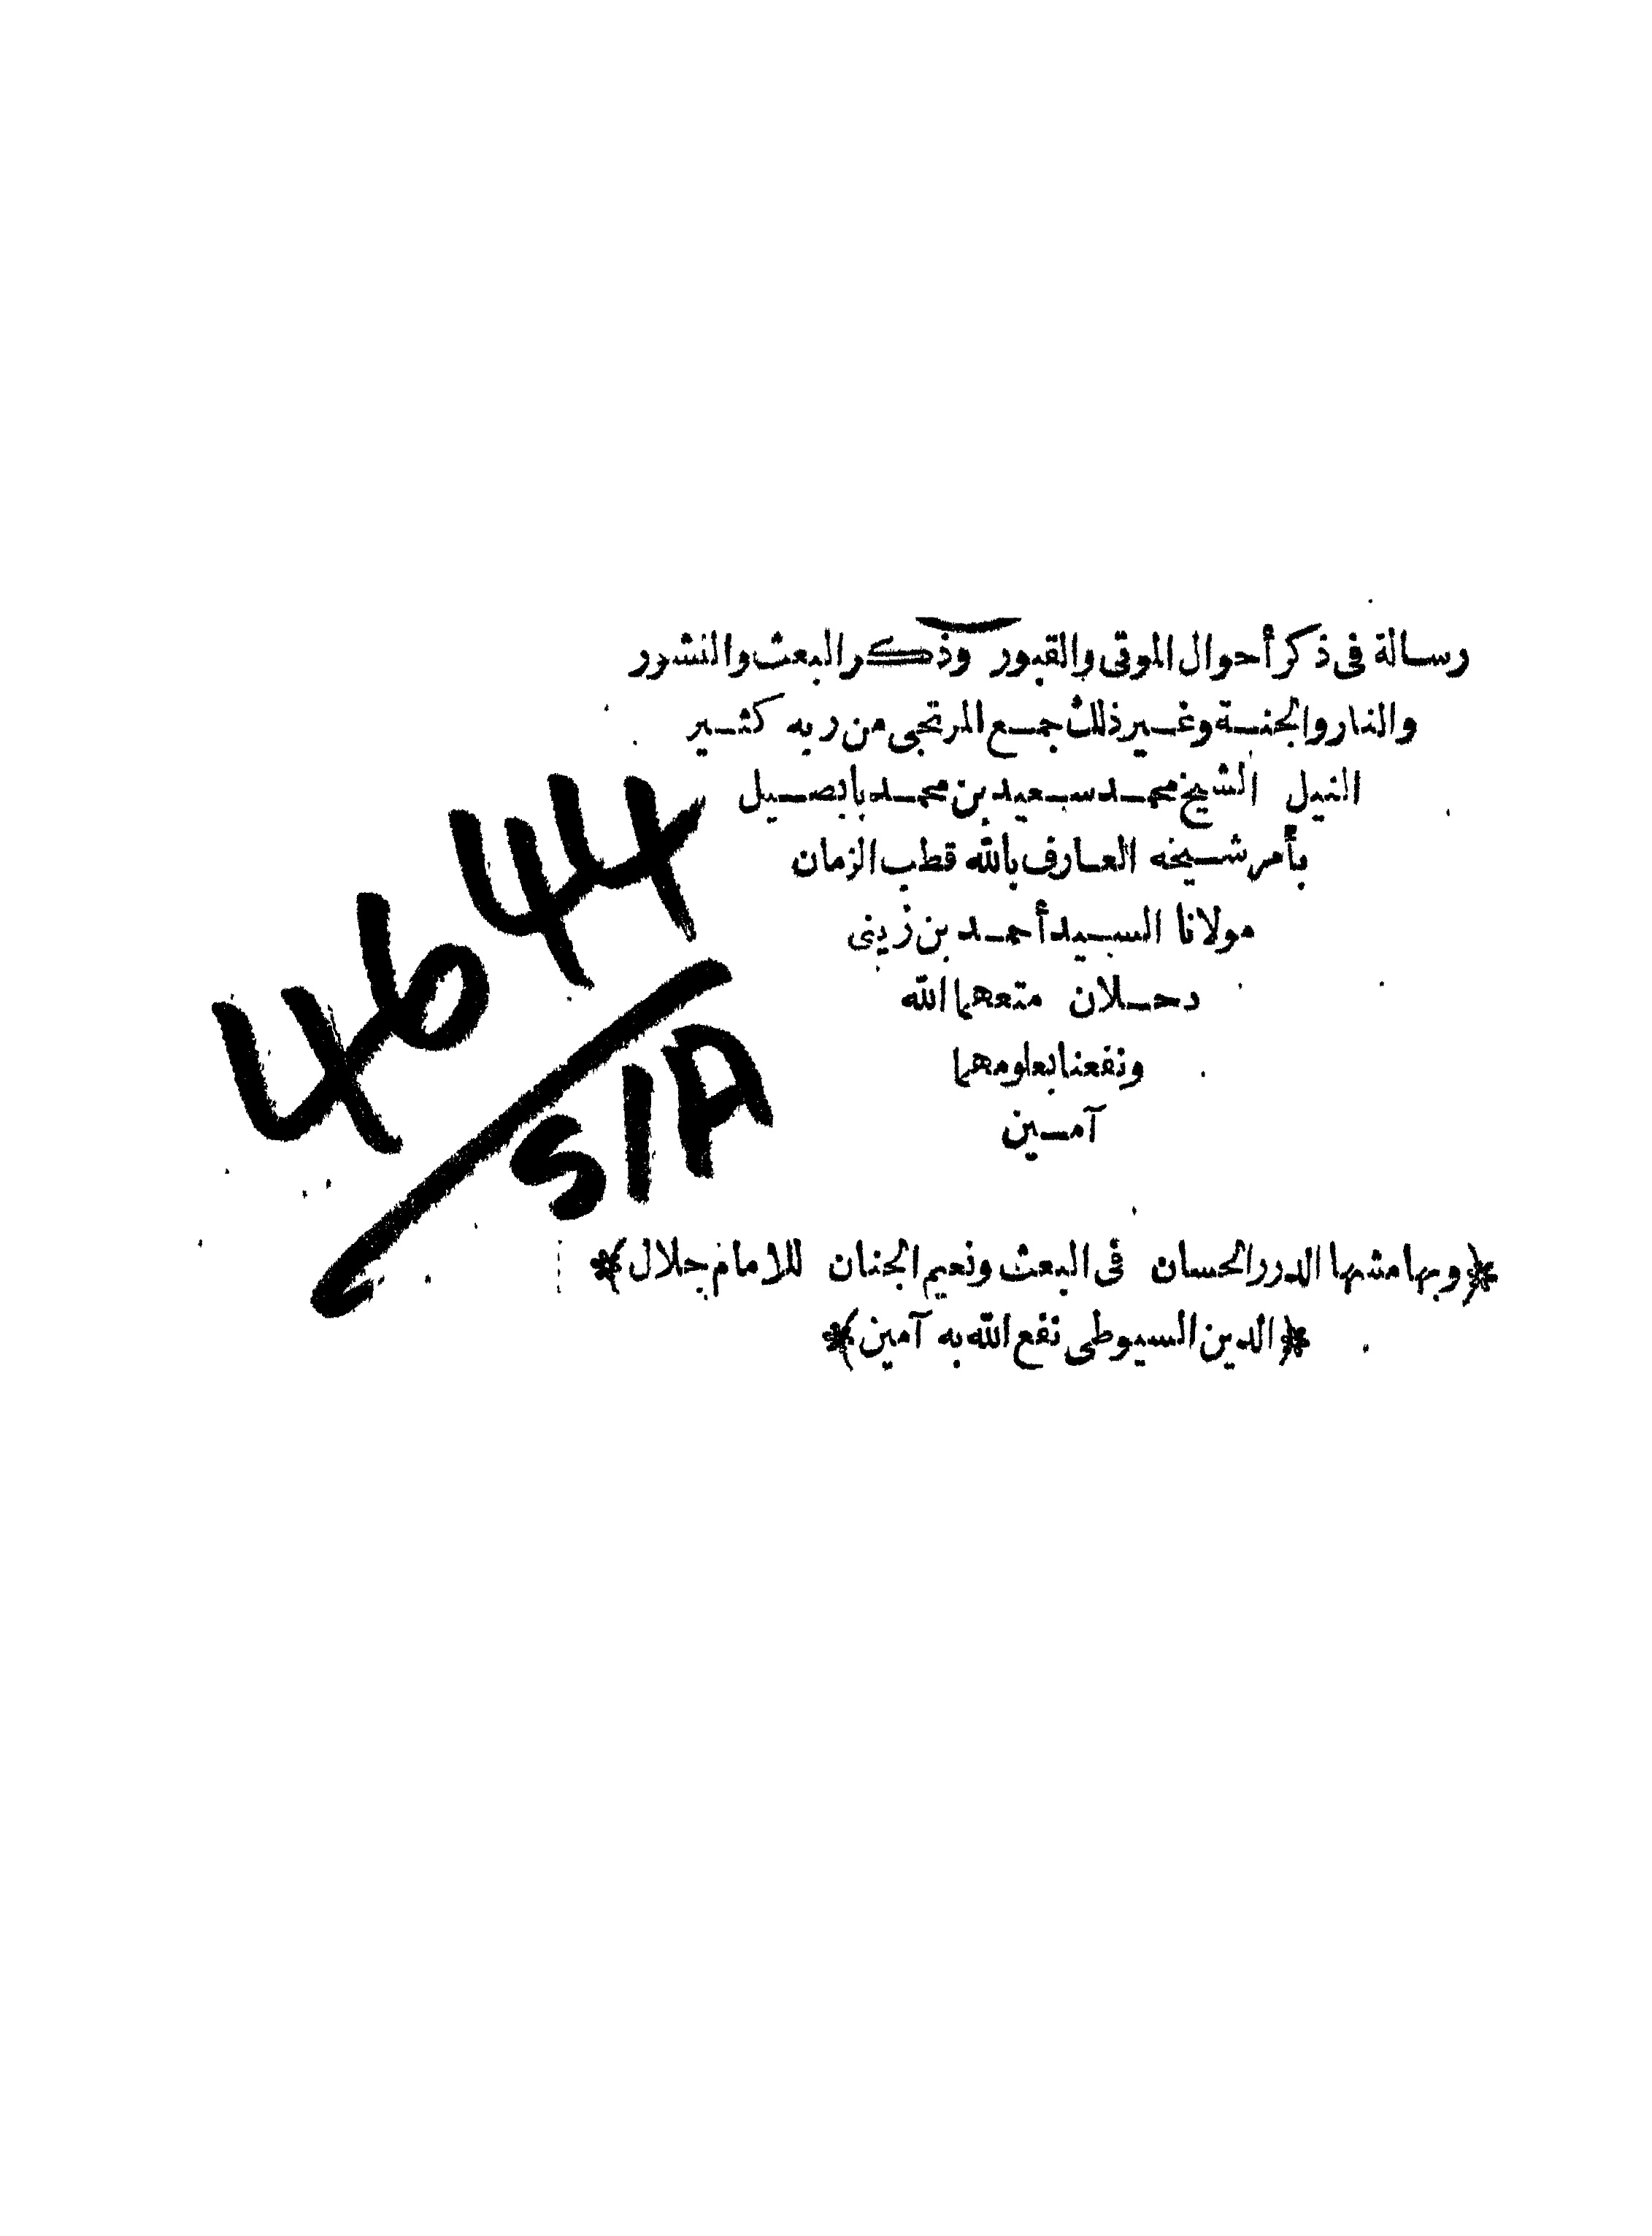 رسالة فى ذكر أحوال الموتى والقبور وذكر البعث والنشور
والنار والجنة وغير ذلك جمع المرتجى من ربه كثير
النيل الشيخ محمد سعيد بن محمد بابصيل
بأمر شيخه العارف بالله قطب الزمان
مولانا السيد أحمد بن زينى
دحلان متعهما الله
ونفعنا بعلومهما
آمين
4644
S/A
﴿وبهامشها الدرر الحسان فى البعث ونعيم الجنان للامام جلال﴾
﴿الدين السيوطى نفع الله به آمين﴾